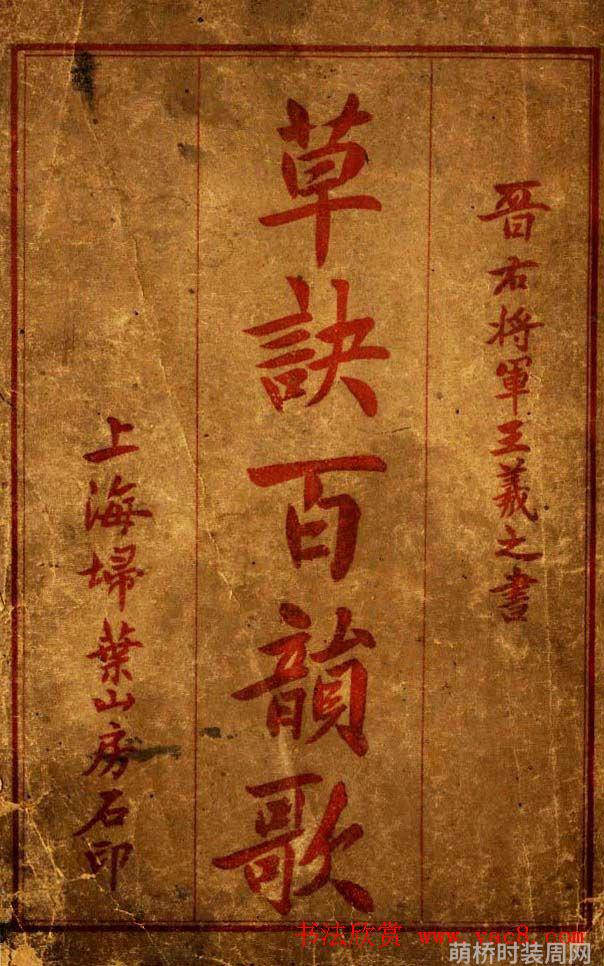 晋右将軍王羲之書
草訣百韻歌
上海埽葉山房石印
书法欣赏 www.yac8.com
萌桥时装周网